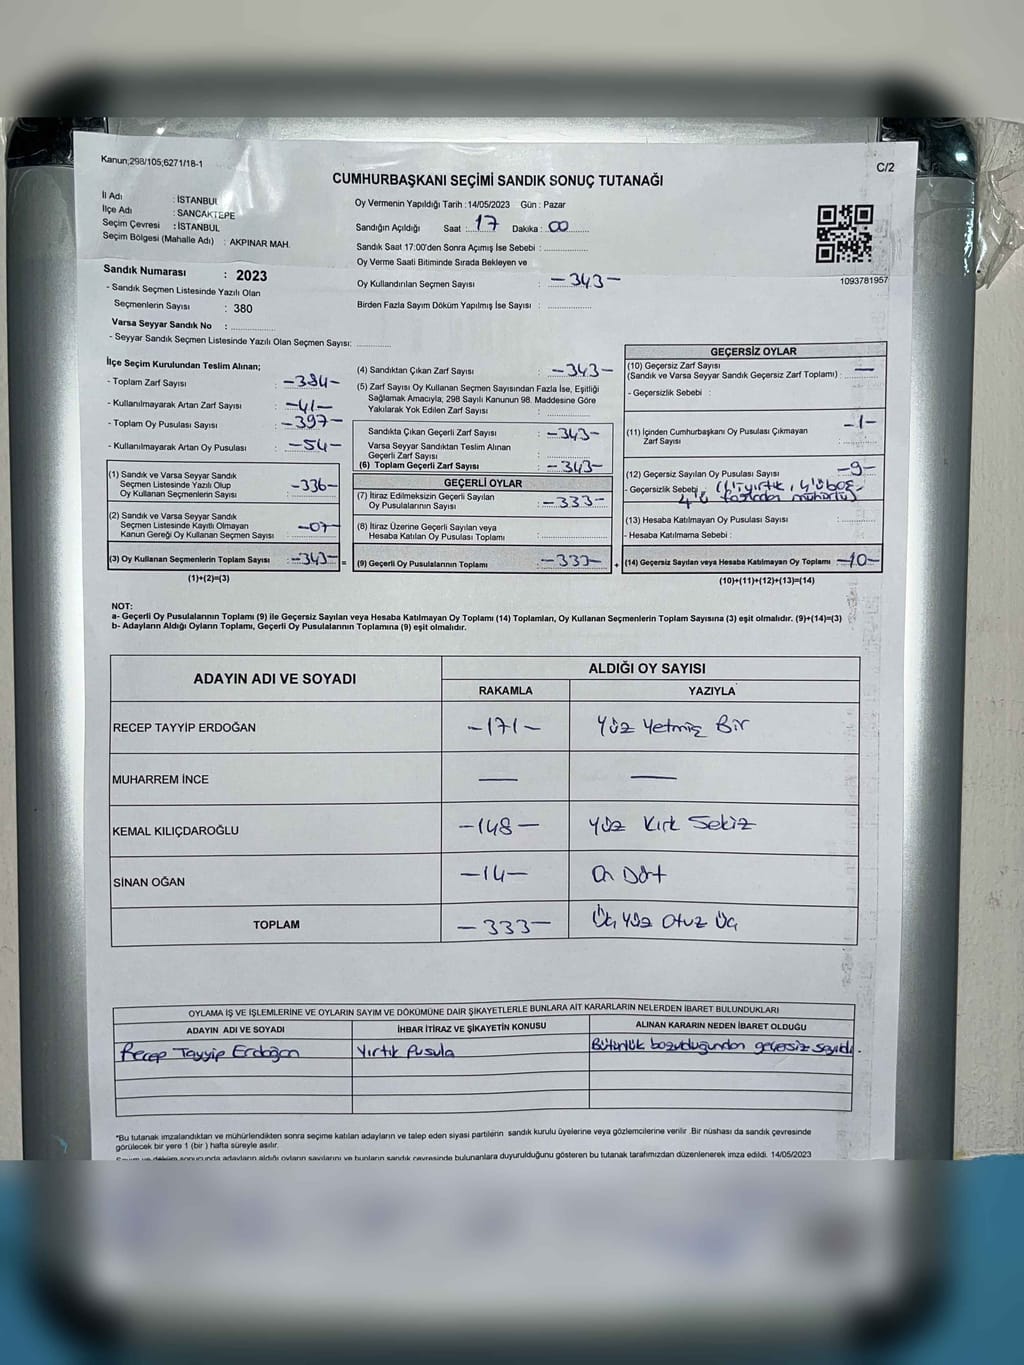 Kanun;298/105;6271/18-1
C/2
CUMHURBAŞKANI SEÇİMİ SANDIK SONUÇ TUTANAĞI
İl Adı : İSTANBUL
İlçe Adı : SANCAKTEPE
Seçim Çevresi : İSTANBUL
Seçim Bölgesi (Mahalle Adı) : AKPINAR MAH.
Sandık Numarası : 2023
- Sandık Seçmen Listesinde Yazılı Olan
Seçmenlerin Sayısı : 380
Varsa Seyyar Sandık No : ....................
- Seyyar Sandık Seçmen Listesinde Yazılı Olan Seçmen Sayısı: ..............
Oy Vermenin Yapıldığı Tarih : 14/05/2023 Gün : Pazar
Sandığın Açıldığı Saat : 17 Dakika : 00
Sandık Saat 17:00'den Sonra Açımış İse Sebebi : ..................
Oy Verme Saati Bitiminde Sırada Bekleyen ve
Oy Kullandırılan Seçmen Sayısı : -343-
Birden Fazla Sayım Döküm Yapılmış İse Sayısı : ..................
1093781957
İlçe Seçim Kurulundan Teslim Alınan;
- Toplam Zarf Sayısı : -384-
- Kullanılmayarak Artan Zarf Sayısı : -41-
- Toplam Oy Pusulası Sayısı : -397-
- Kullanılmayarak Artan Oy Pusulası : -54-
(1) Sandık ve Varsa Seyyar Sandık
Seçmen Listesinde Yazılı Olup
Oy Kullanan Seçmenlerin Sayısı : -336-
(2) Sandık ve Varsa Seyyar Sandık
Seçmen Listesinde Kayıtlı Olmayan
Kanun Gereği Oy Kullanan Seçmen Sayısı : -07-
(3) Oy Kullanan Seçmenlerin Toplam Sayısı : -343- =
(1)+(2)=(3)
(4) Sandıktan Çıkan Zarf Sayısı : -343-
(5) Zarf Sayısı Oy Kullanan Seçmen Sayısından Fazla İse, Eşitliği
Sağlamak Amacıyla, 298 Sayılı Kanunun 98. Maddesine Göre
Yakılarak Yok Edilen Zarf Sayısı : ..............
Sandıkta Çıkan Geçerli Zarf Sayısı : -343-
Varsa Seyyar Sandıktan Teslim Alınan
Geçerli Zarf Sayısı : ..............
(6) Toplam Geçerli Zarf Sayısı : -343-
GEÇERLİ OYLAR
(7) İtiraz Edilmeksizin Geçerli Sayılan
Oy Pusulalarının Sayısı : -333-
(8) İtiraz Üzerine Geçerli Sayılan veya
Hesaba Katılan Oy Pusulası Toplamı : ..............
(9) Geçerli Oy Pusulalarının Toplamı : -333- +
GEÇERSİZ OYLAR
(10) Geçersiz Zarf Sayısı
(Sandık ve Varsa Seyyar Sandık Geçersiz Zarf Toplamı) : —
- Geçersizlik Sebebi :
(11) İçinden Cumhurbaşkanı Oy Pusulası Çıkmayan
Zarf Sayısı : -1-
(12) Geçersiz Sayılan Oy Pusulası Sayısı : -9-
- Geçersizlik Sebebi : (1'i yırtık, 4'ü boş
4'ü fazladan mühürlü)
(13) Hesaba Katılmayan Oy Pusulası Sayısı : ..............
- Hesaba Katılmama Sebebi :
(14) Geçersiz Sayılan veya Hesaba Katılmayan Oy Toplamı -10-
(10)+(11)+(12)+(13)=(14)
NOT:
a- Geçerli Oy Pusulalarının Toplamı (9) ile Geçersiz Sayılan veya Hesaba Katılmayan Oy Toplamı (14) Toplamları, Oy Kullanan Seçmenlerin Toplam Sayısına (3) eşit olmalıdır. (9)+(14)=(3)
b- Adayların Aldığı Oyların Toplamı, Geçerli Oy Pusulalarının Toplamına (9) eşit olmalıdır.
ADAYIN ADI VE SOYADI ALDIĞI OY SAYISI
RAKAMLA YAZIYLA
RECEP TAYYİP ERDOĞAN -171- Yüz Yetmiş Bir
MUHARREM İNCE — —
KEMAL KILIÇDAROĞLU -148- Yüz Kırk Sekiz
SİNAN OĞAN -14- On Dört
TOPLAM -333- Üç Yüz Otuz Üç
OYLAMA İŞ VE İŞLEMLERİNE VE OYLARIN SAYIM VE DÖKÜMÜNE DAİR ŞİKAYETLERLE BUNLARA AİT KARARLARIN NELERDEN İBARET BULUNDUKLARI
ADAYIN ADI VE SOYADI İHBAR İTİRAZ VE ŞİKAYETİN KONUSU ALINAN KARARIN NEDEN İBARET OLDUĞU
Recep Tayyip Erdoğan Yırtık Pusula Bütünlük bozulduğundan geçersiz sayıldı.
*Bu tutanak imzalandıktan ve mühürlendikten sonra seçime katılan adayların ve talep eden siyasi partilerin sandık kurulu üyelerine veya gözlemcilerine verilir .Bir nüshası da sandık çevresinde
görülecek bir yere 1 (bir ) hafta süreyle asılır.
Sayım ve döküm sonucunda adayların aldığı oyların sayılarını ve bunların sandık çevresinde bulunanlara duyurulduğunu gösteren bu tutanak tarafımızdan düzenlenerek imza edildi. 14/05/2023